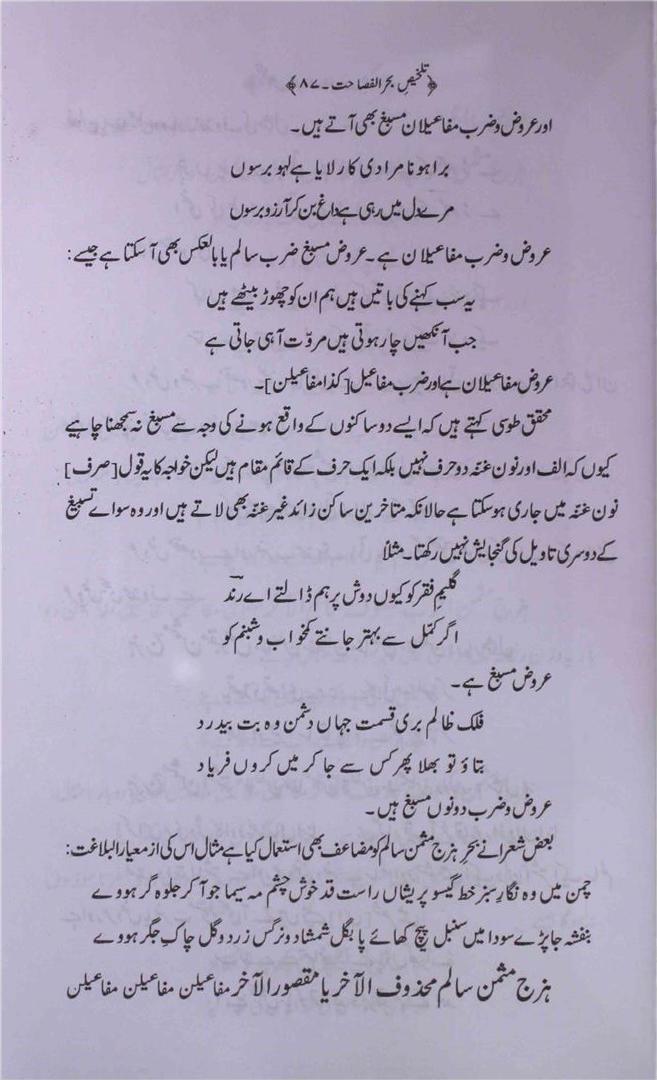 ﴿ تلخیصِ بحر الفصاحت ۔ ۸۷ ﴾
اور عروض و ضرب مفاعیلان مسبغ بھی آتے ہیں۔
برا ہو نامرادی کا رلایا ہے لہو برسوں
مرے دل میں رہی ہے داغ بن کر آرزو برسوں
عروض و ضرب مفاعیلان ہے۔ عروض مسبغ ضرب سالم یا بالعکس بھی آسکتا ہے جیسے:
یہ سب کہنے کی باتیں ہیں ہم ان کو چھوڑ بیٹھے ہیں
جب آنکھیں چار ہوتی ہیں مروّت آہی جاتی ہے
عروض مفاعیلان ہے اور ضرب مفاعیل [کذا مفاعیلن]۔
محقق طوسی کہتے ہیں کہ ایسے دو ساکنوں کے واقع ہونے کی وجہ سے مسبغ نہ سمجھنا چاہیے
کیوں کہ الف اور نون غنّہ دو حرف نہیں بلکہ ایک حرف کے قائم مقام ہیں لیکن خواجہ کا یہ قول [صرف]
نون غنّہ میں جاری ہوسکتا ہے حالانکہ متاخرین ساکن زائد غیر غنّہ بھی لاتے ہیں اور وہ سواے تسبیغ
کے دوسری تاویل کی گنجایش نہیں رکھتا۔ مثلاً
گلیمِ فقر کو کیوں دوش پر ہم ڈالتے اے رندؔ
اگر کمّل سے بہتر جانتے کمخواب و شبنم کو
عروض مسبغ ہے۔
فلک ظالم بری قسمت جہاں دشمن وہ بت بیدرد
بتاؤ تو بھلا پھر کس سے جا کر میں کروں فریاد
عروض و ضرب دونوں مسبغ ہیں۔
بعض شعرا نے بحرِ ہزج مثمن سالم کو مضاعف بھی استعمال کیا ہے مثال اس کی از معیار البلاغت:
چمن میں وہ نگارِ سبز خط گیسو پریشاں راست قد خوش چشم مہ سیما جو آ کر جلوہ گر ہووے
بنفشہ جا پڑے سودا میں سنبل پیچ کھائے پا بگل شمشاد و نرگس زرد و گل چاکِ جگر ہووے
ہزج مثمن سالم محذوف الآخر یا مقصور الآخر مفاعیلن مفاعیلن مفاعیلن